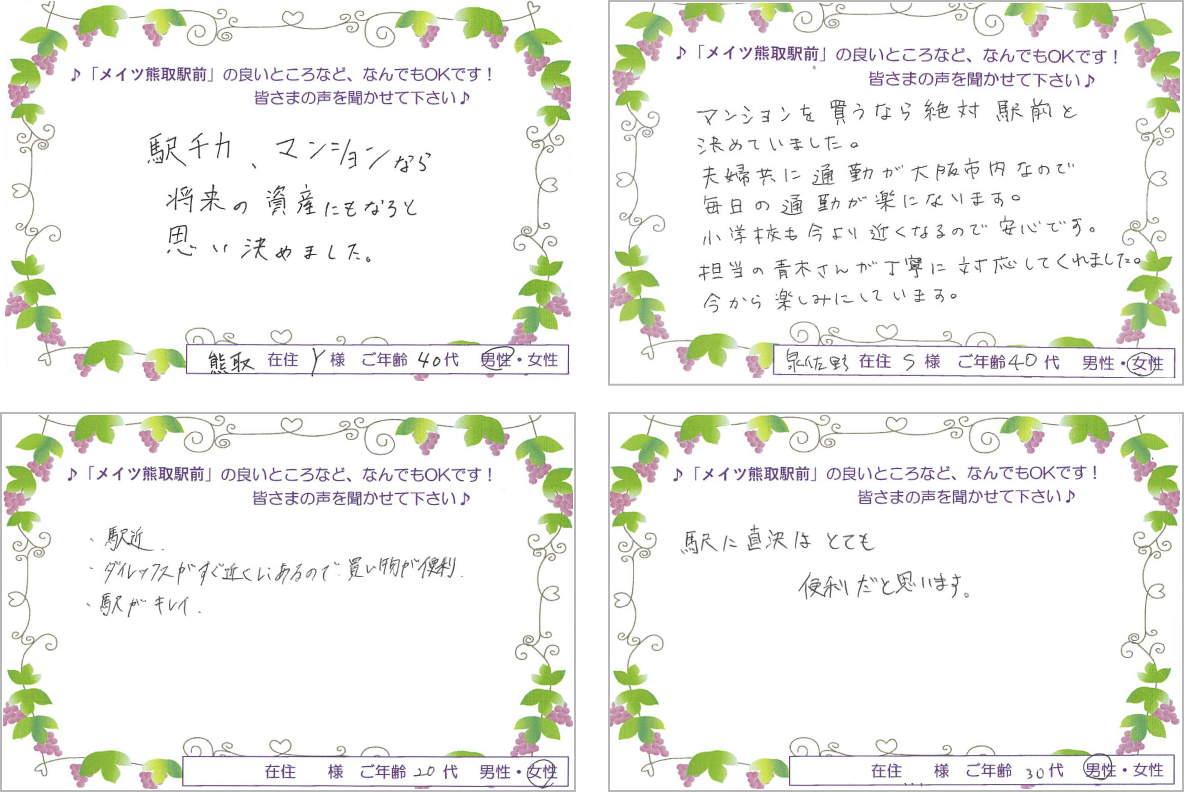 ♪「メイツ熊取駅前」の良いところなど、なんでもOKです！
皆さまの声を聞かせて下さい♪
駅チカ、マンションなら
将来の資産にもなると
思い決めました。
熊取 在住 Y 様 ご年齢 40代 男性・女性
♪「メイツ熊取駅前」の良いところなど、なんでもOKです！
皆さまの声を聞かせて下さい♪
マンションを買うなら絶対駅前と
決めていました。
夫婦共に通勤が大阪市内なので
毎日の通勤が楽になります。
小学校も今より近くなるので安心です。
担当の青木さんが丁寧に対応してくれました。
今から楽しみにしています。
泉佐野 在住 S 様 ご年齢 40代 男性・女性
♪「メイツ熊取駅前」の良いところなど、なんでもOKです！
皆さまの声を聞かせて下さい♪
・駅近．
・ダイレックスがすぐ近くにあるので．買い物が便利．
・駅がキレイ．
在住 様 ご年齢 20代 男性・女性
♪「メイツ熊取駅前」の良いところなど、なんでもOKです！
皆さまの声を聞かせて下さい♪
駅に直決はとても
便利だと思います。
在住 様 ご年齢 30代 男性・女性